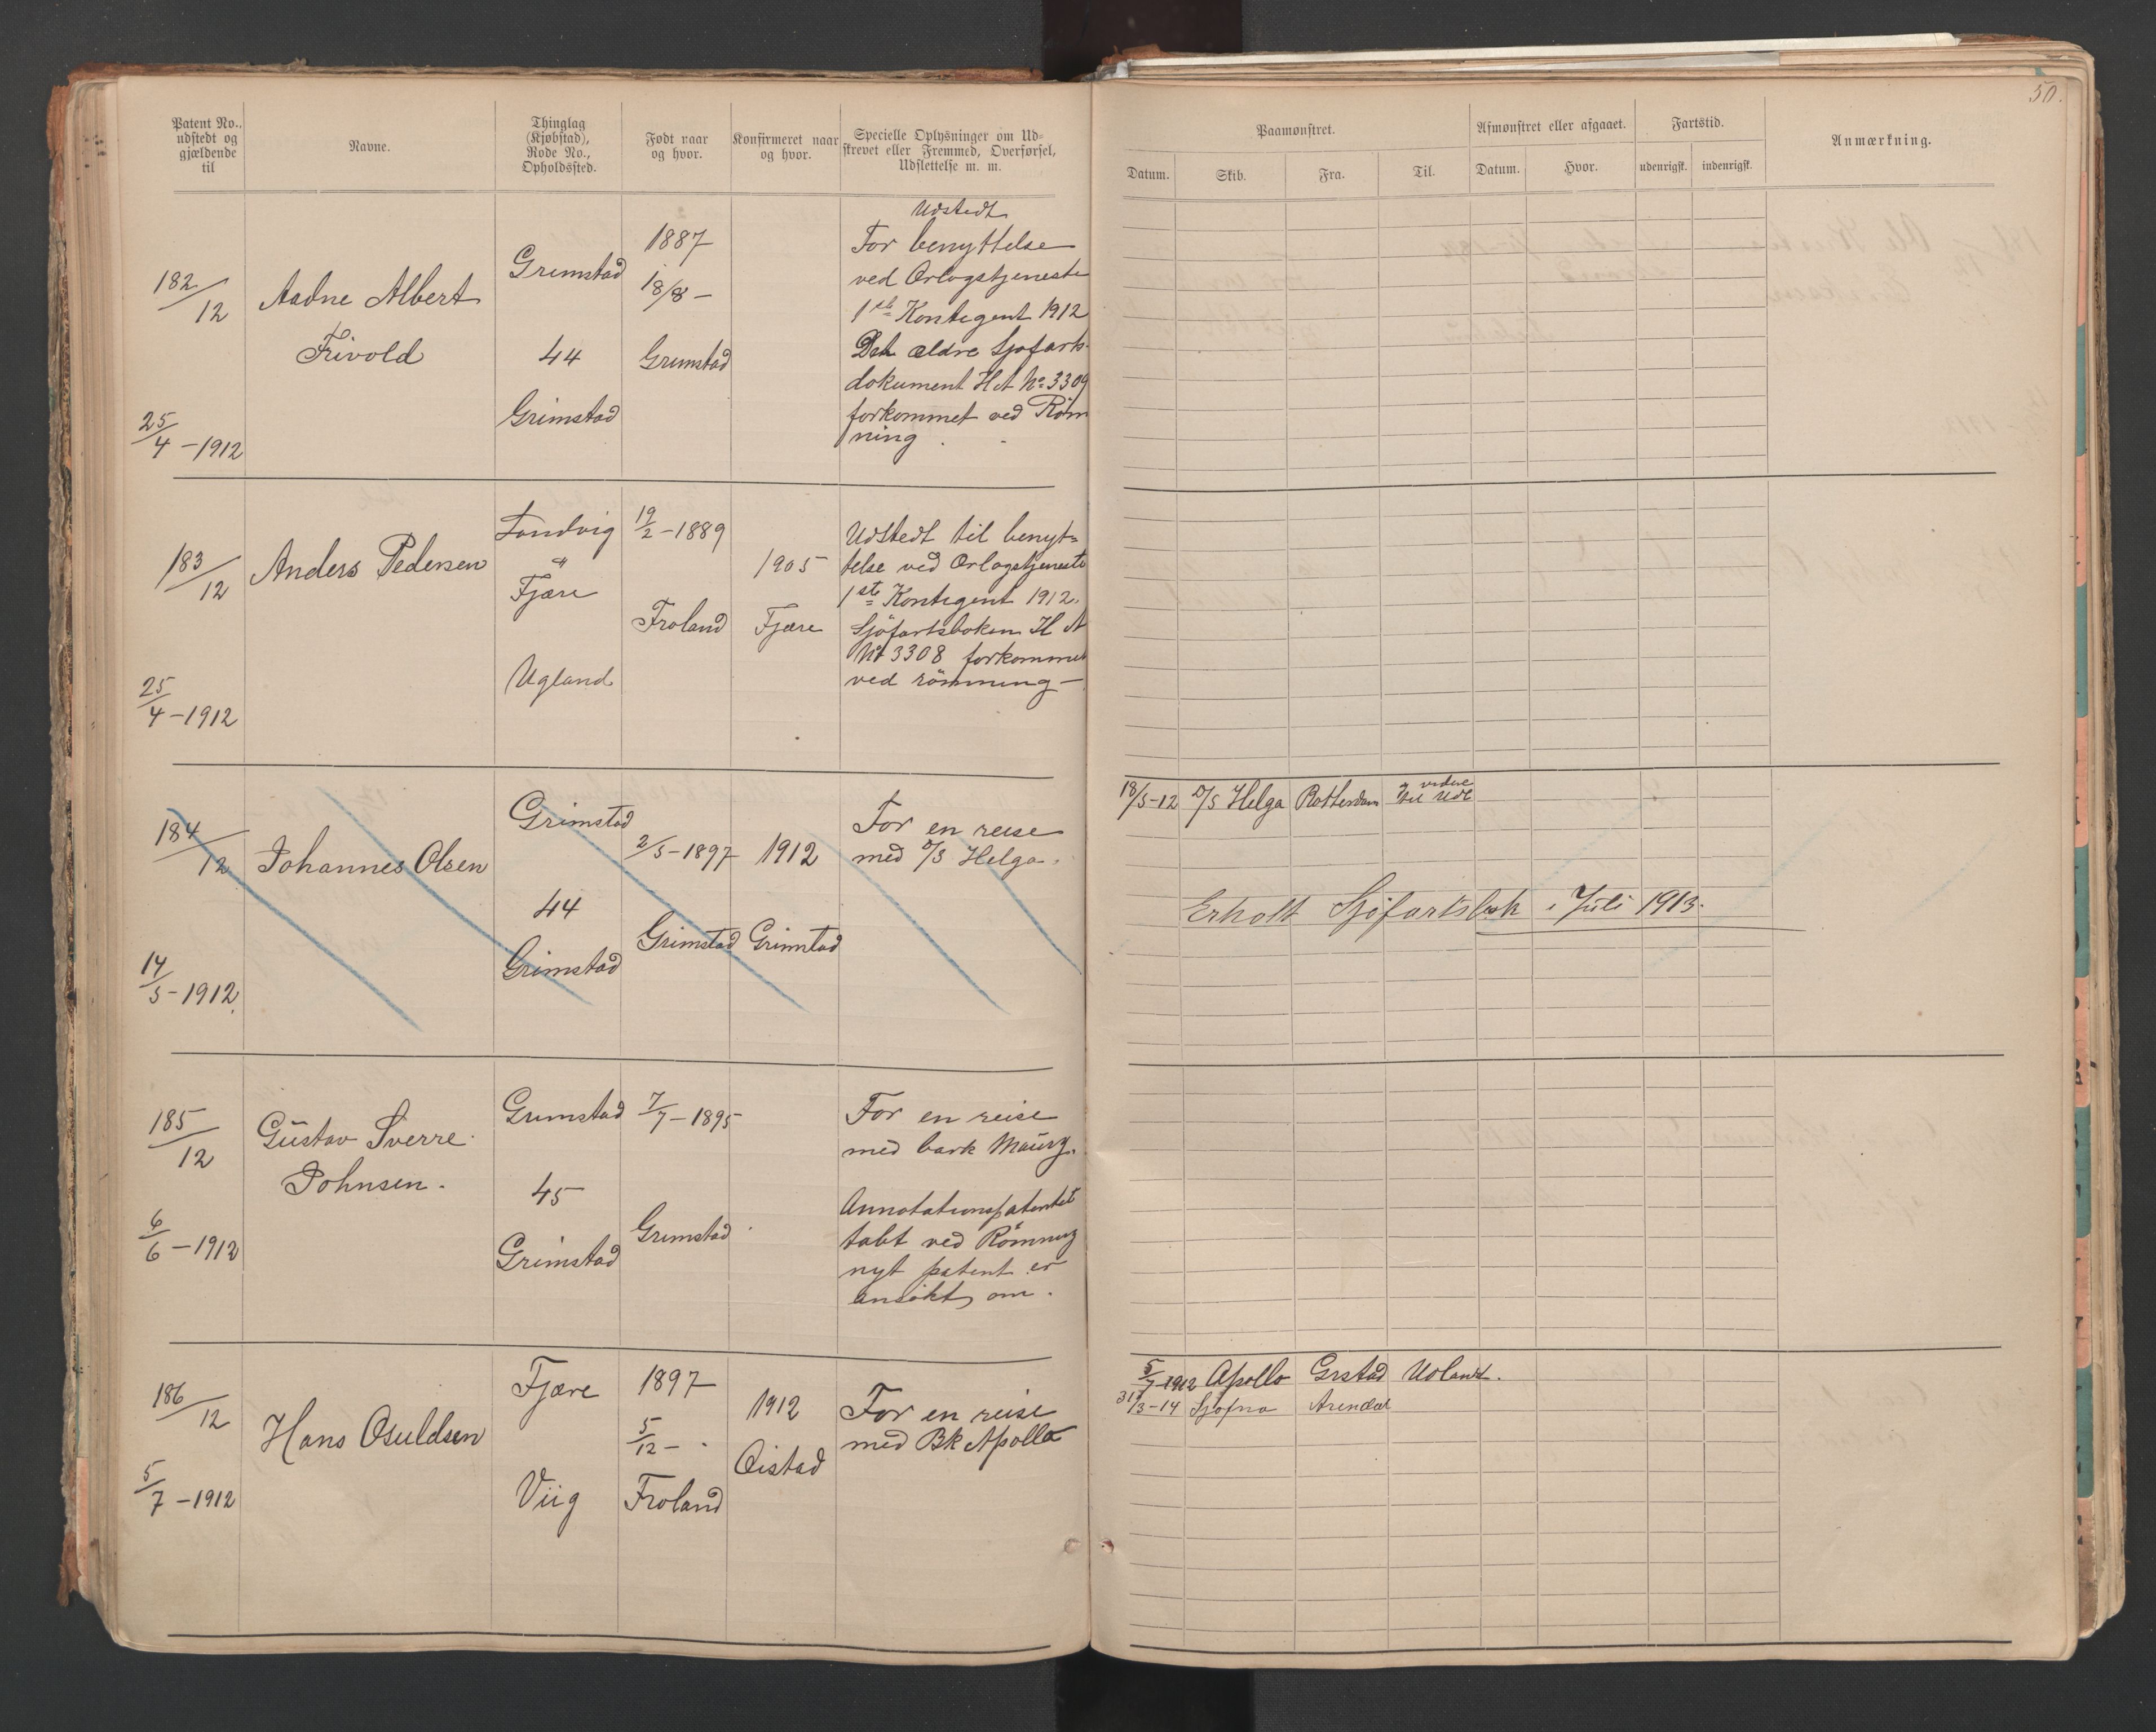 50.
Patent No.,
udstedt og
gjældende
til
Navne.
Thinglag
(Kjøbstad),
Rode No.,
Opholdssted.
Født naar
og hvor.
Konfirmeret naar
og hvor.
Specielle Oplysninger om Ud-
skrevet eller Fremmed, Overførsel,
Udslettelse m. m.
Paamønstret.
Afmønstret eller afgaaet.
Fartstid.
Anmærkning.
Datum.
Skib.
Fra.
Til.
Datum.
Hvor.
udenrigsk.
indenrigsk.
182/12
25/4 - 1912
Aadne Albert
Frivold
Grimstad
44
Grimstad
1887
18/8 -
Grimstad
Udstedt
For benyttelse
ved Orlogstjeneste
1ste Kontegent 1912
Det ældre Sjøfarts-
dokument H A No 3309
forkommet ved Røm
ning.
183/12
25/4 - 1912
Anders Pedersen
Landvig
Fjære
Ugland
19/2 - 1889
Froland
1905
Fjære
Udstedt til benyt-
telse ved Orlogstjeneste
1ste Kontegent 1912.
Sjöfartsboken H A
No 3308 forkommet
ved römming -
184/12
14/5 - 1912.
Johannes Olsen
Grimstad
44
Grimstad
2/5 - 1897
Grimstad
1912
Grimstad
For en reise
med D/S Helga.
18/5-12 D/S Helga Rotterdam og videre
til Udl
Erholt Sjöfartsbok i Juli 1913.
185/12
6/6 - 1912
Gustav Sverre
Johnsen.
Grimstad
45
Grimstad
7/7 - 1895
Grimstad
For en reise
med bark
Annotationspatentet
tabt ved Rømning
nyt patent er
ansökt om.
186/12
5/7 - 1912
Hans Osuldsen
Fjære
Viig
1897
5/12 - .
Froland
1912
Oistad
For en reise
med Bk Apollo
5/7-1912 Apollo Grstad Udland.
31/3-14 Sjofna Arendal